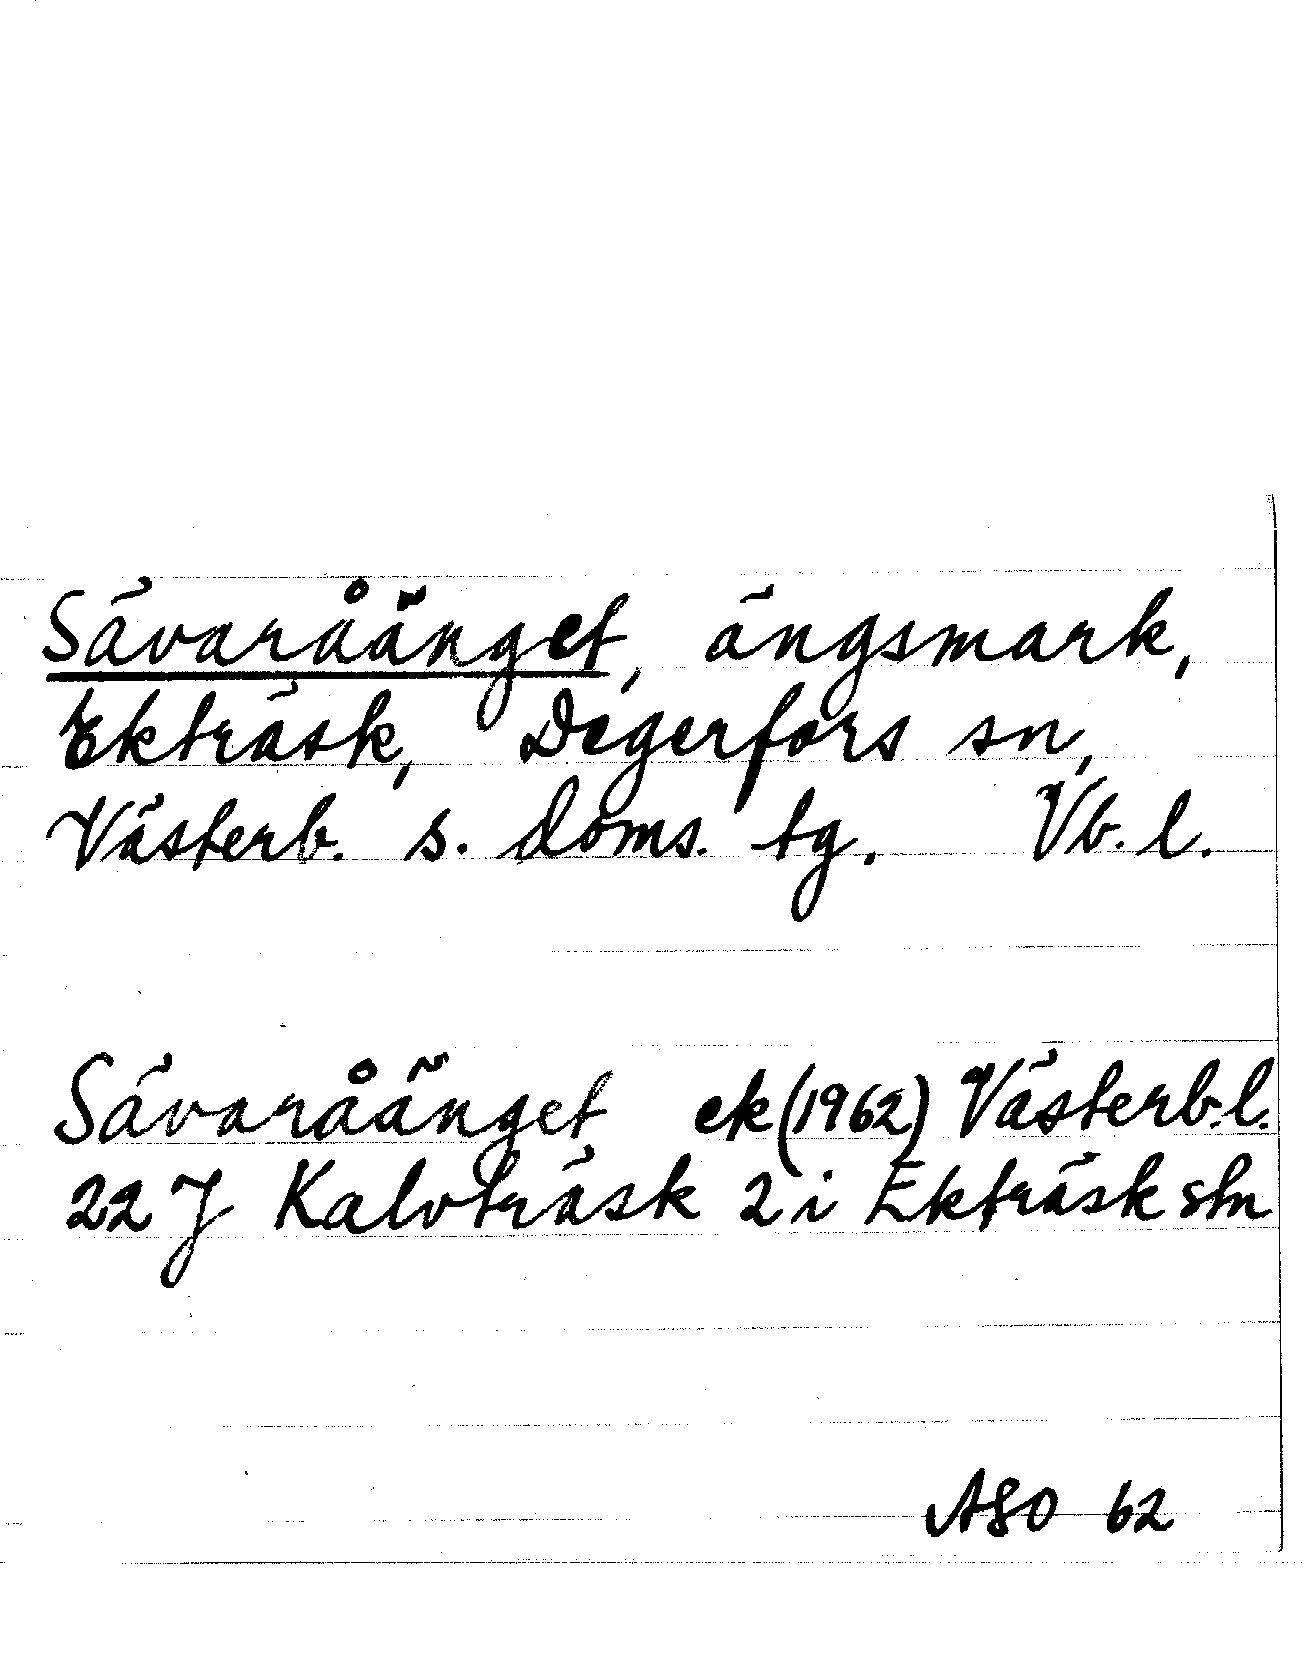 Sävaråänget, ängsmark,
Ekträsk, Degerfors sn,
Västerb. s. doms. tg. Vb. l.
Sävaråänget ek (1962) Västerb. l.
22 J Kalvträsk 2 i Ekträsk stn
ASO 62